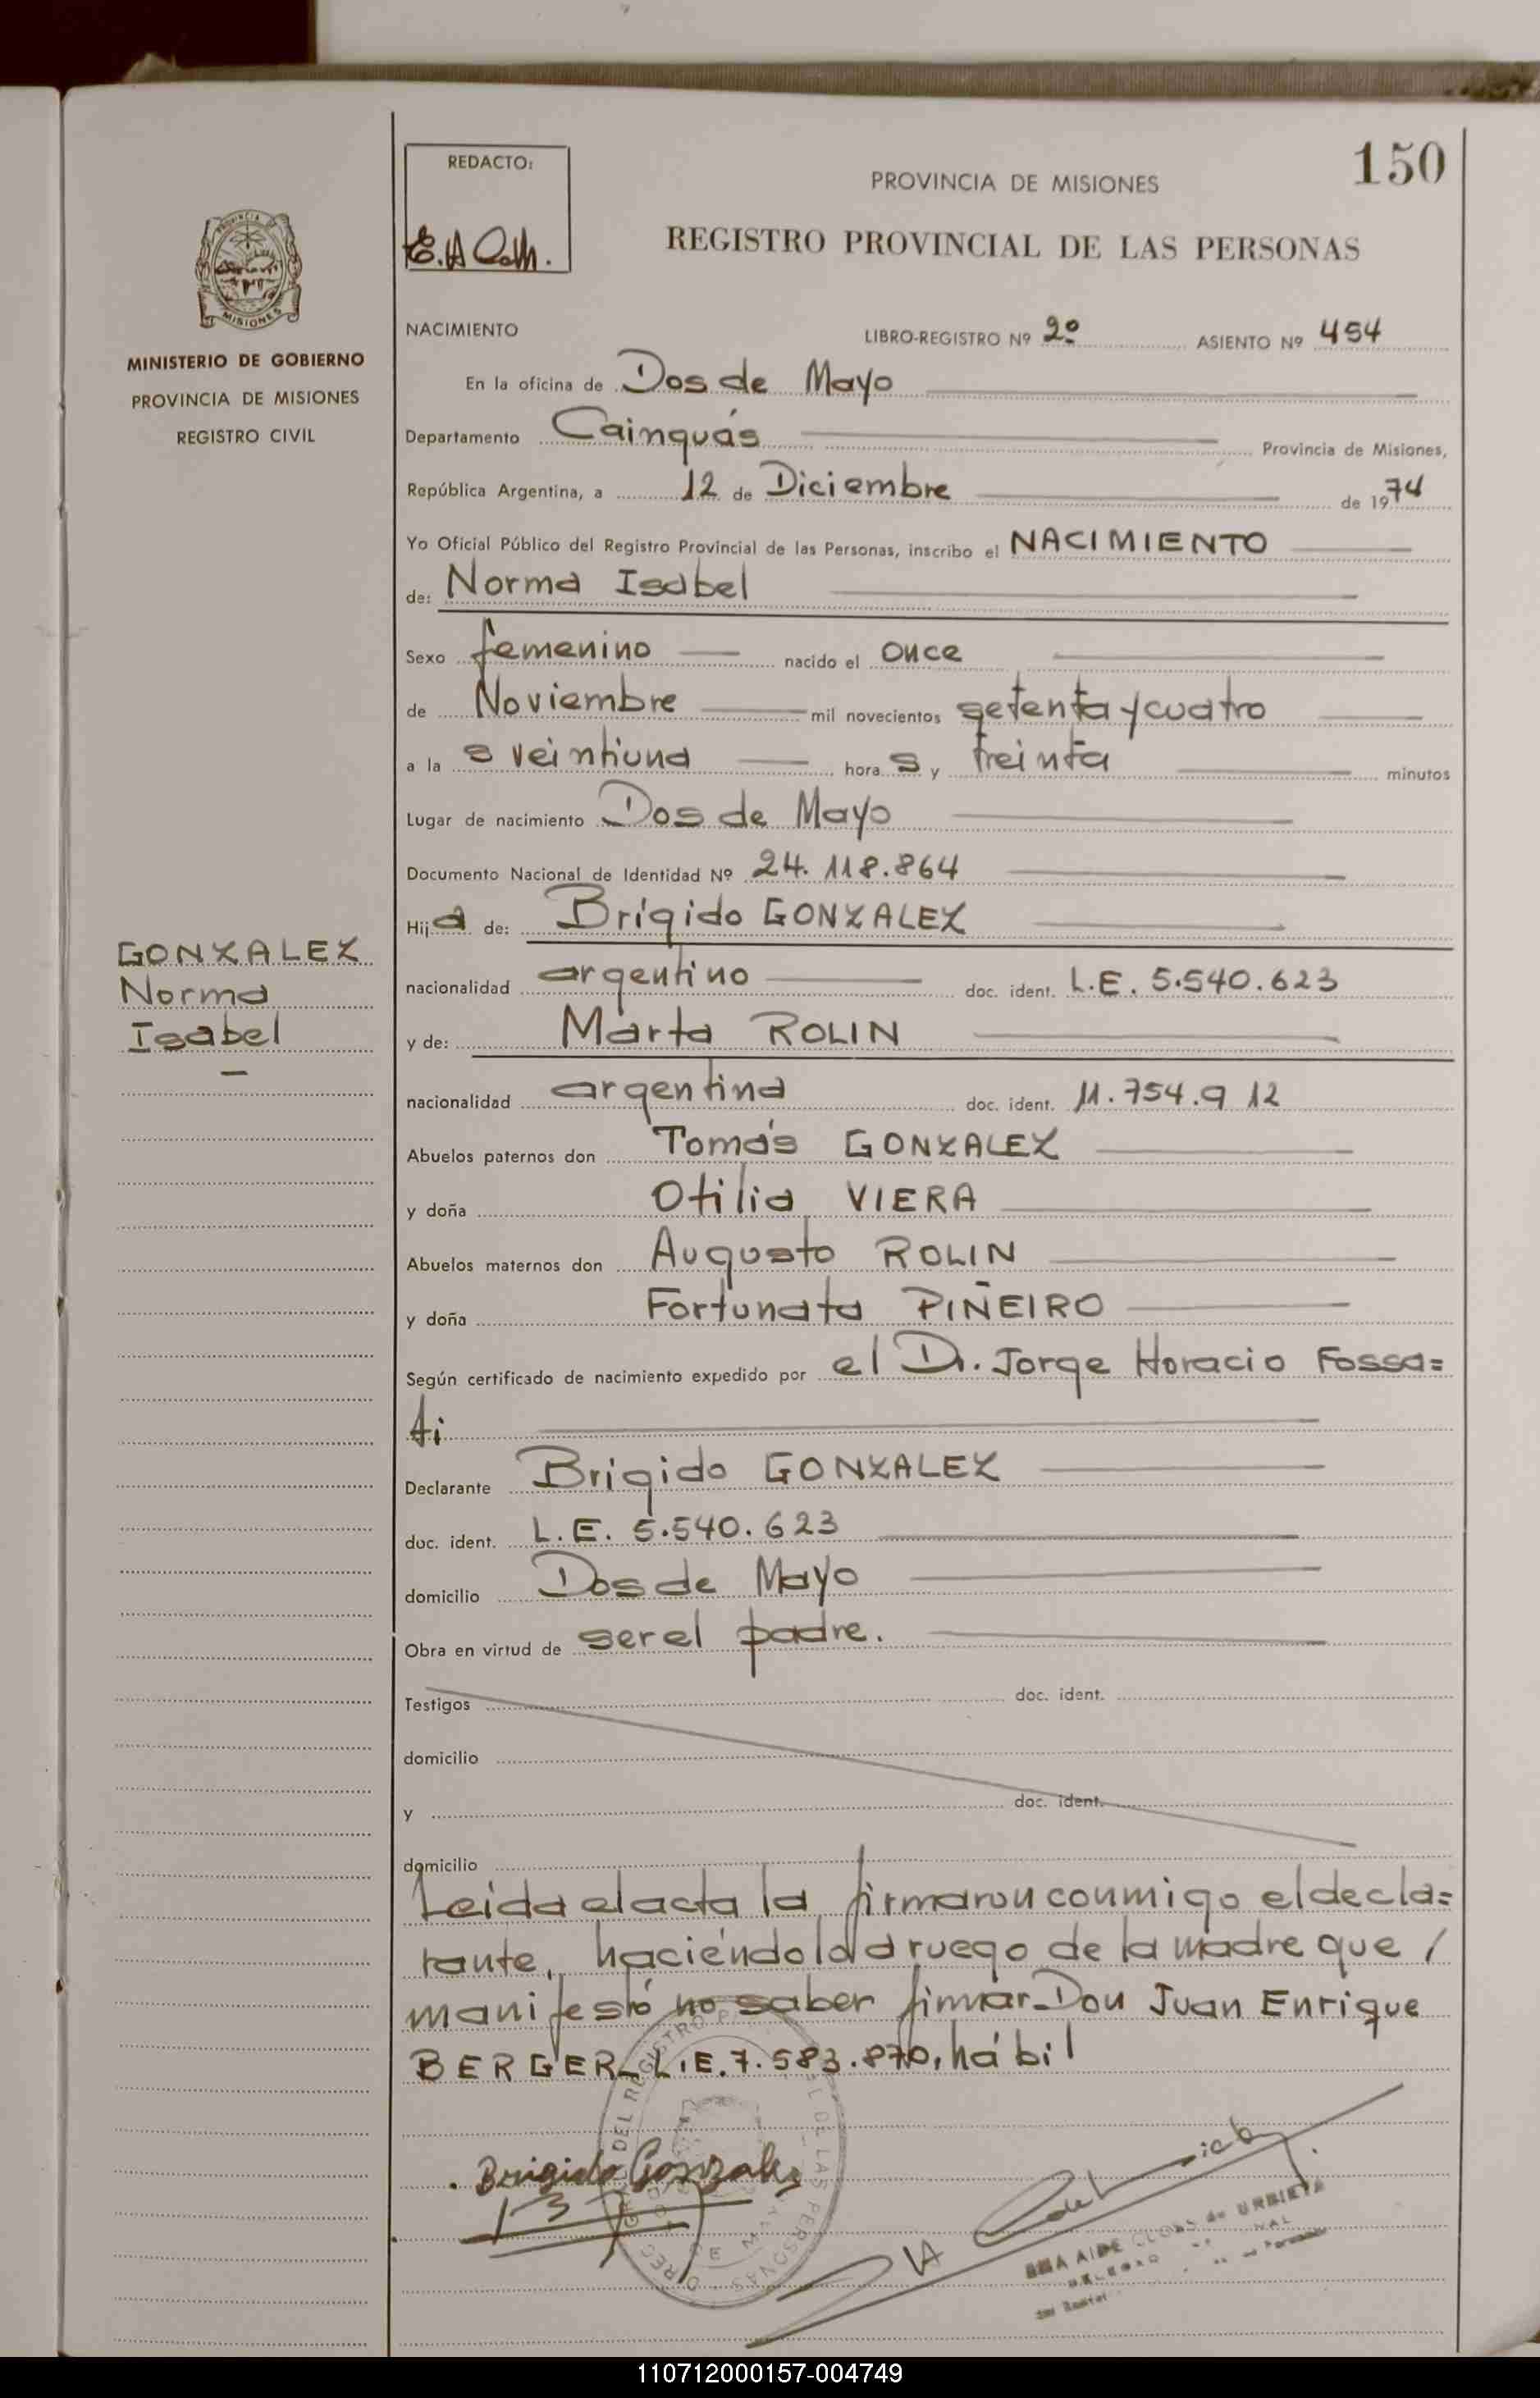 150
REDACTO:
PROVINCIA DE MISIONES
REGISTRO PROVINCIAL DE LAS PERSONAS
MISIONES
MINISTERIO DE GOBIERNO
PROVINCIA DE MISIONES
REGISTRO CIVIL
NACIMIENTO LIBRO-REGISTRO Nº 2º ASIENTO Nº 454
En la oficina de Dos de Mayo
Departamento Cainguás Provincia de Misiones,
República Argentina, a 12 de Diciembre de 1974
Yo Oficial Público del Registro Provincial de las Personas, inscribo el NACIMIENTO
de: Norma Isabel
Sexo femenino nacido el once
de Noviembre mil novecientos setenta y cuatro
a la s veintiuna horas y treinta minutos
Lugar de nacimiento Dos de Mayo
Documento Nacional de Identidad Nº 24.118.864
Hija de: Brígido GONZALEZ
GONZALEZ
Norma
Isabel
nacionalidad argentino doc. ident. L.E. 5.540.623
y de: Marta ROLIN
nacionalidad argentina doc. ident. 11.754.912
Abuelos paternos don Tomás GONZALEZ
y doña Otilia VIERA
Abuelos maternos don Augusto ROLIN
y doña Fortunata PIÑEIRO
Según certificado de nacimiento expedido por el Dr. Jorge Horacio Fossa=
ti
Declarante Brigido GONZALEZ
doc. ident. L.E. 5.540.623
domicilio Dos de Mayo
Obra en virtud de ser el padre.
Testigos doc. ident.
domicilio
y doc. ident.
domicilio
Leida el acta la firmaron conmigo el decla=
rante, haciéndolo a ruego de la madre que /
manifestó no saber firmar Don Juan Enrique
BERGER L.E. 7.583.870, hábil
Brigido Gonzalez
AIDE de URBIETA
110712000157-004749